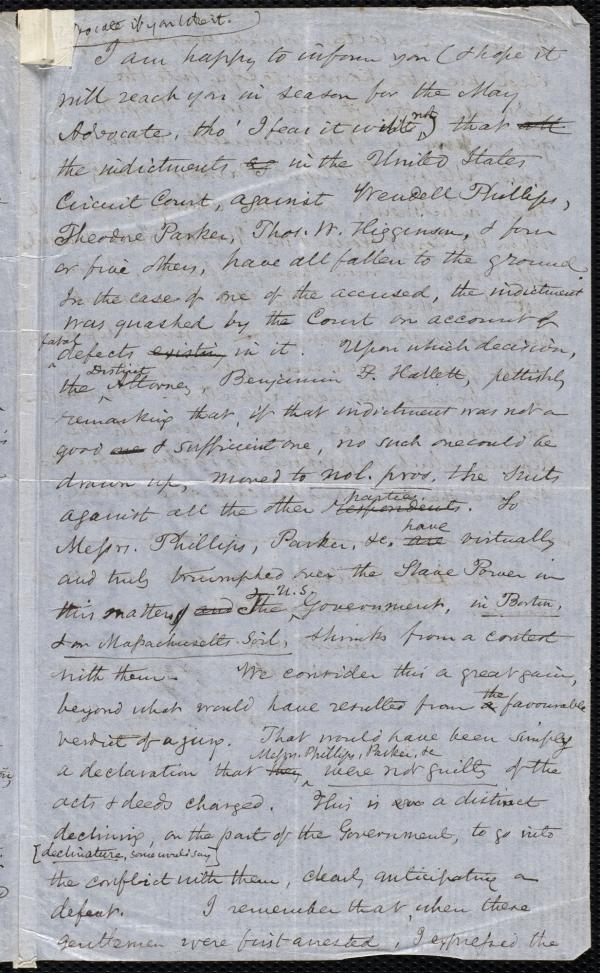 Advocate if you like it.
I am happy to inform you (& hope it
will reach you in season for the May
Advocate, tho' I fear it will not) that all
the indictments in the United States
Circuit Court, against Wendell Phillips,
Theodore Parker, Thos. W. Higginson, & four
or five others, have all fallen to the ground.
In the case of one of the accused, the indictment
was quashed by the Court on account of
fatal defects existing in it. Upon which decision,
the District Attorney, Benjamin F. Hallett, pettishly
remarking that, if that indictment was not a
good one & sufficient one, no such one could be
drawn up, moved to nol. pros. the suits
against all the other respondents parties. So
Messrs. Phillips, Parker, &c. are have virtually
and truly triumphed over the Slave Power in
this matter, and The U.S. Government, in Boston,
& on Massachusetts Soil, shrinks from a contest
with them. We consider this a great gain,
beyond what would have resulted from the favourable
verdict of a jury. That would have been simply
a declaration that they Messrs. Phillips, Parker, &c were not guilty of the
acts & deeds charged. This is a distinct
declining, on the part of the Government, to go into
[declinature, some would say]
the conflict with them, clearly anticipating a
defeat. I remember that, when these
gentlemen were first arrested, I expressed the